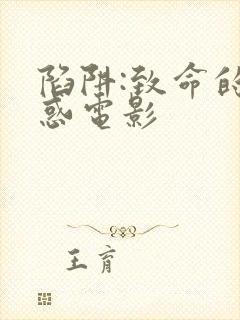 陷阱:致命的
惑电影
王育